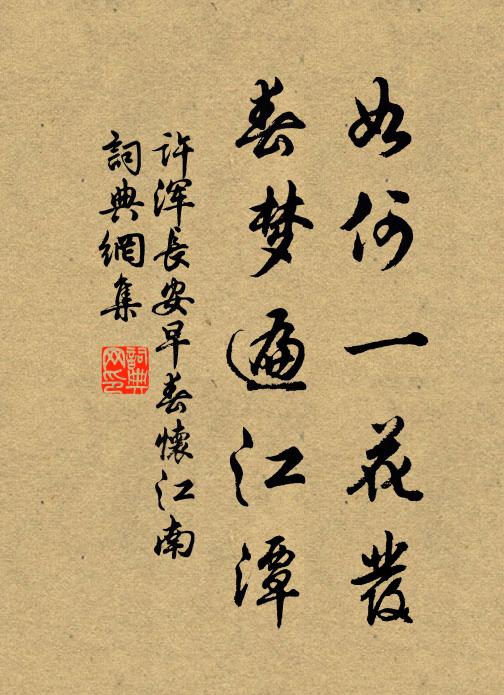 如何一花發
春梦遍江潭
许浑長安早春懷江南
詞典網集
詞典網印